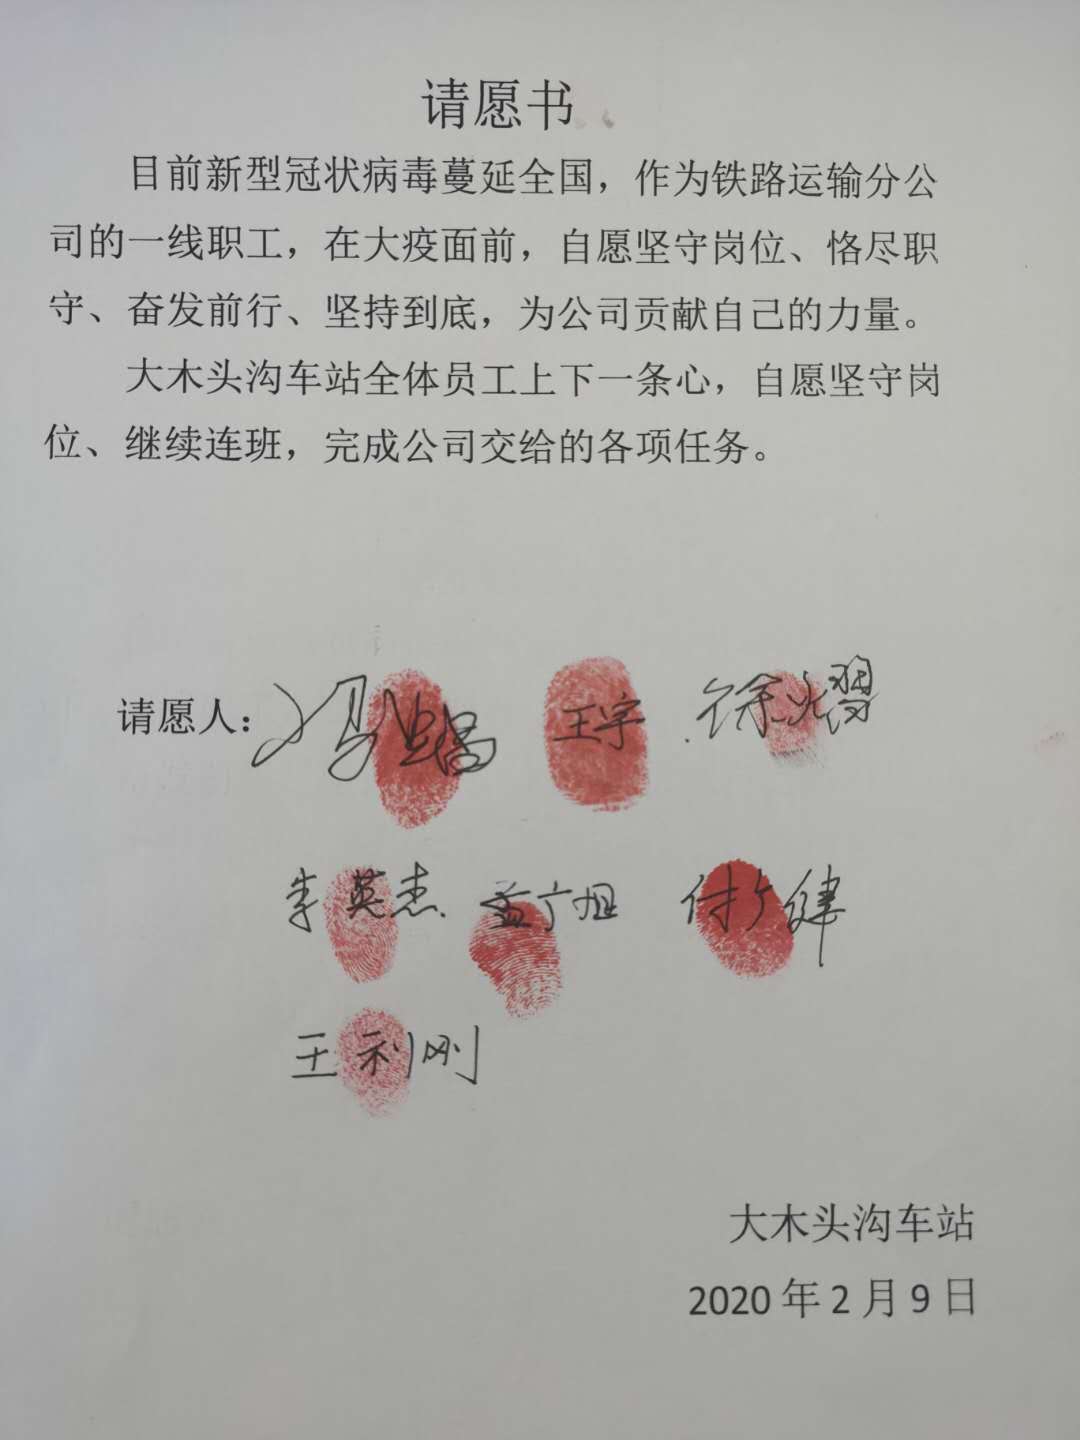 请愿书
目前新型冠状病毒蔓延全国，作为铁路运输分公
司的一线职工，在大疫面前，自愿坚守岗位、恪尽职
守、奋发前行、坚持到底，为公司贡献自己的力量。
大木头沟车站全体员工上下一条心，自愿坚守岗
位、继续连班，完成公司交给的各项任务。
请愿人： 王宇
李英杰 孟广旭
王利刚
大木头沟车站
2020年2月9日